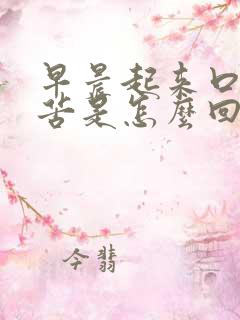 早晨起来口
苦是怎麼回
今翡